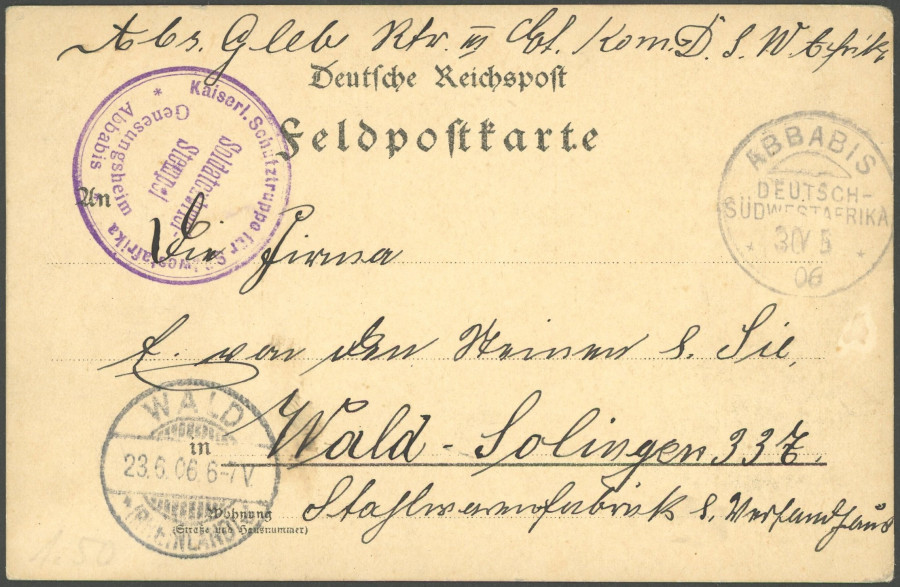 Abs. Gleb Rtr. III Et. Kom. D. S. W. Afrika
Deutsche Reichspost
Feldpostkarte
Kaiserl. Schutztruppe für Südwestafrika
* Genesungsheim Abbabis *
Soldatenbrief
Stempel
ABBABIS
DEUTSCH-
SÜDWESTAFRIKA
06
An
Die Firma
E. von den Steinen & Cie,
WALD
23.6.06.6-7V.
(RHEINLAND)
in
Wald - Solingen 337.
Wohnung
(Straße und Hausnummer)
Stahlwarenfabrik & Versandhaus
1:50